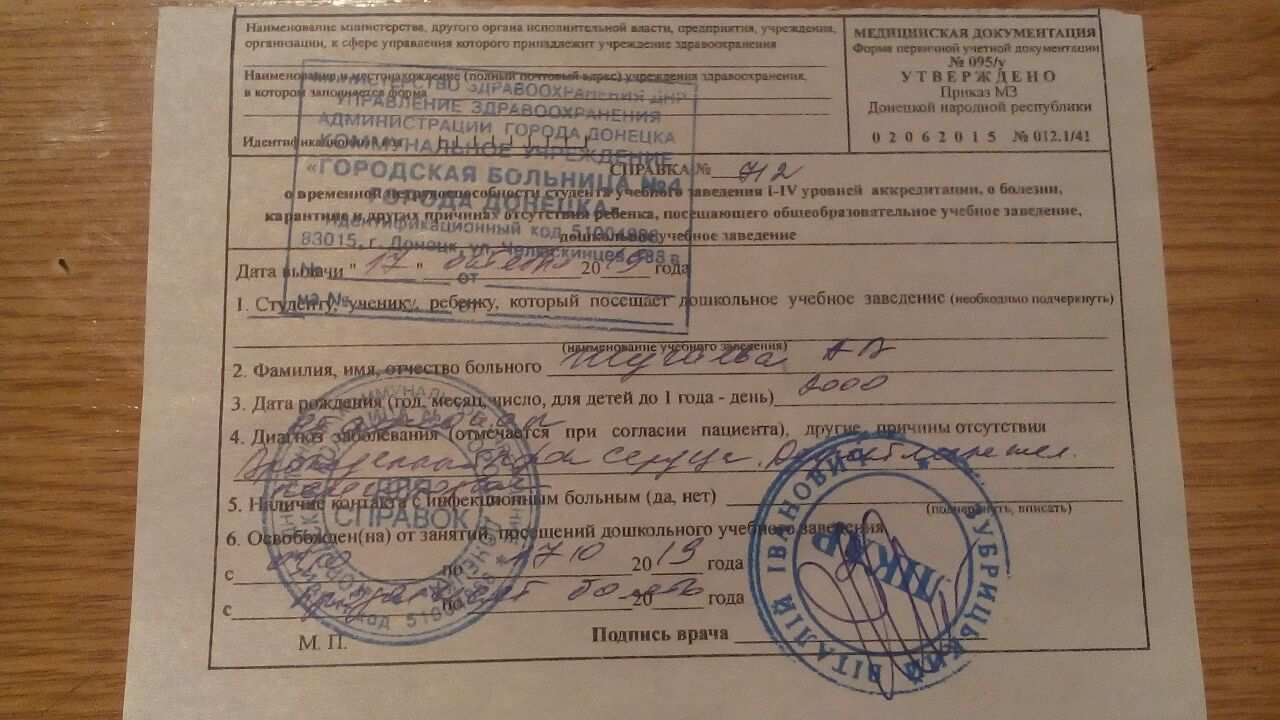 Наименование министерства, другого органа исполнительной власти, предприятия, учреждения,
организации, к сфере управления которого принадлежит учреждение здравоохранения
Наименование и местонахождение (полный почтовый адрес) учреждения здравоохранения,
в котором заполняется форма
Идентификационный код
МЕДИЦИНСКАЯ ДОКУМЕНТАЦИЯ
Форма первичной учетной документации
№ 095/у
УТВЕРЖДЕНО
Приказ МЗ
Донецкой народной республики
02062015 № 012.1/41
МИНИСТЕРСТВО ЗДРАВООХРАНЕНИЯ ДНР
УПРАВЛЕНИЕ ЗДРАВООХРАНЕНИЯ
АДМИНИСТРАЦИИ ГОРОДА ДОНЕЦКА
КОММУНАЛЬНОЕ УЧРЕЖДЕНИЕ
«ГОРОДСКАЯ БОЛЬНИЦА
ГОРОДА ДОНЕЦКА»
Идентификационный код
83015, г. Донецк, ул. Челюскинцев,
№ от
М.Э. № от
СПРАВКА № 712
о временной нетрудоспособности студента учебного заведения I-IV уровней аккредитации, о болезни,
карантине и других причинах отсутствия ребенка, посещающего общеобразовательное учебное заведение,
дошкольное учебное заведение
Дата выдачи " 17 " 2019 года
1. Студенту, ученику, ребенку, который посещает дошкольное учебное заведение (необходимо подчеркнуть)
(наименование учебного заведения)
2. Фамилия, имя, отчество больного
3. Дата рождения (год, месяц, число, для детей до 1 года - день) 2000
4. Диагноз заболевания (отмечается при согласии пациента), другие причины отсутствия
сердца.
5. Наличие контакта с инфекционным больным (да, нет)
(подчеркнуть, вписать)
6. Освобожден(на) от занятий, посещений дошкольного учебного заведения
с по 1710 2019 года
с по 20 года
М. П.
Подпись врача
ДЛЯ
СПРАВОК
ЗУБРИЦЬКИЙ ВІТАЛІЙ ІВАНОВИЧ
ЛІКАР